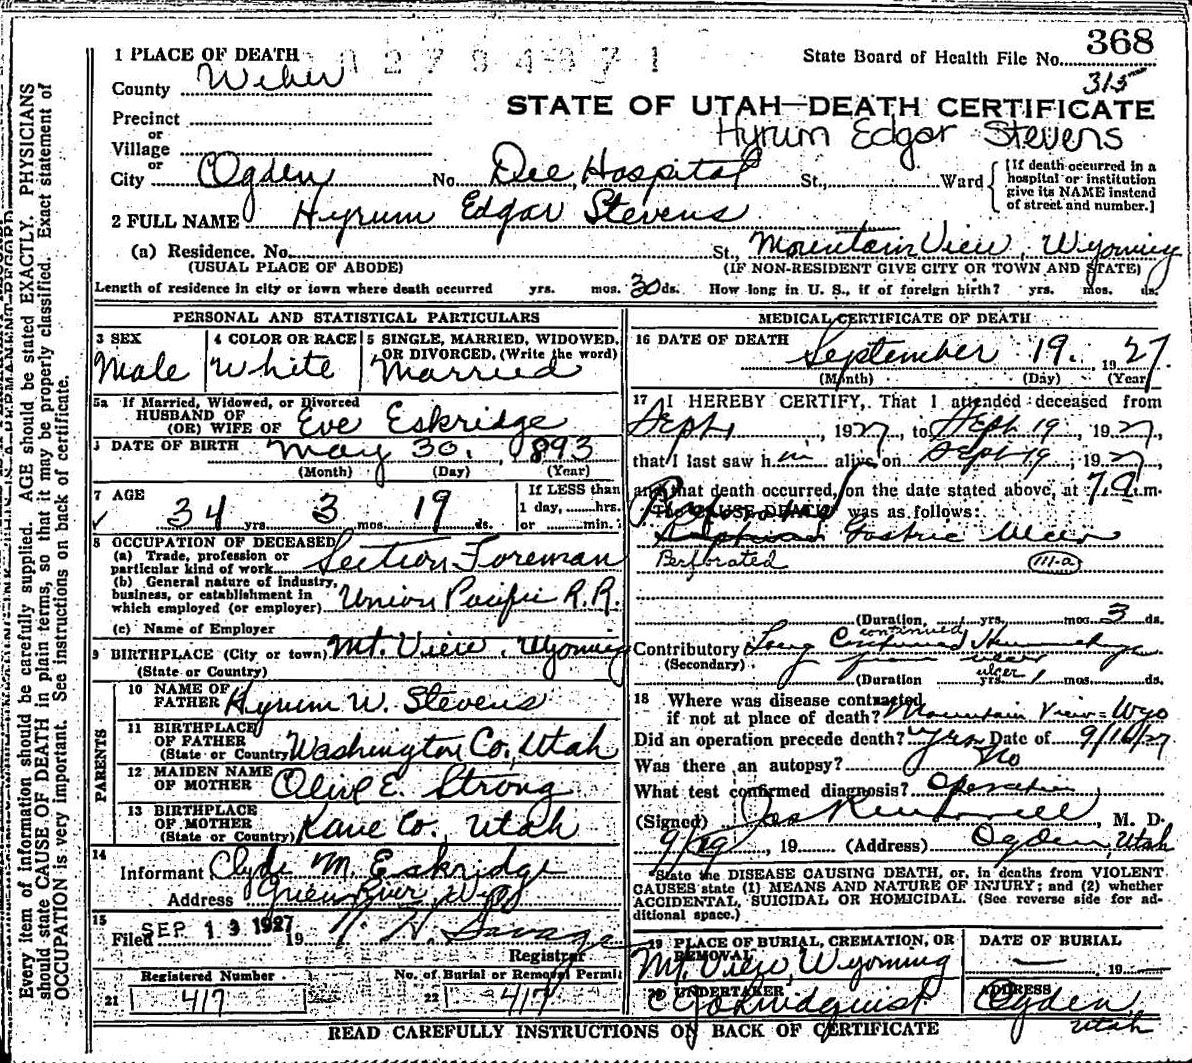 368
1 PLACE OF DEATH
State Board of Health File No.
315
County Weber
STATE OF UTAH—DEATH CERTIFICATE
Precinct
Hyrum Edgar Stevens
or
Village
or
City Ogden No. Dee Hospital St., Ward
[If death occurred in a
hospital or institution
give its NAME instead
of street and number.]
2 FULL NAME Hyrum Edgar Stevens
(a) Residence. No. St., Mountain View, Wyoming
(USUAL PLACE OF ABODE) (IF NON-RESIDENT GIVE CITY OR TOWN AND STATE)
Length of residence in city or town where death occurred yrs. mos. 30 ds. How long in U. S., if of foreign birth? yrs. mos. ds.
PERSONAL AND STATISTICAL PARTICULARS
3 SEX
Male
4 COLOR OR RACE
White
5 SINGLE, MARRIED, WIDOWED,
OR DIVORCED, (Write the word)
Married
5a If Married, Widowed, or Divorced
HUSBAND OF
(OR) WIFE OF Eve Eskridge
DATE OF BIRTH May 30, 1893
(Month) (Day) (Year)
7 AGE
34 yrs. 3 mos. 19 ds.
If LESS than
1 day, hrs.
or min.
8 OCCUPATION OF DECEASED
(a) Trade, profession or
particular kind of work Section Foreman
(b) General nature of industry,
business, or establishment in
which employed (or employer) Union Pacific R.R.
(c) Name of Employer
9 BIRTHPLACE (City or town) Mt. View, Wyoming
(State or Country)
PARENTS
10 NAME OF
FATHER Hyrum W. Stevens
11 BIRTHPLACE
OF FATHER
(State or Country) Washington Co., Utah
12 MAIDEN NAME
OF MOTHER Olive E. Strong
13 BIRTHPLACE
OF MOTHER
(State or Country) Kane Co., Utah
14
Informant Clyde M. Eskridge
Address Green River Wyo
15
Filed SEP 13 1927 19
Registrar
Registered Number
21 417
No. of Burial or Removal Permit
22 417
MEDICAL CERTIFICATE OF DEATH
16 DATE OF DEATH
September 19, 1927
(Month) (Day) (Year)
17 I HEREBY CERTIFY, That I attended deceased from
Sept, 1927, to Sept 19, 1927,
that I last saw him alive on Sept 19, 1927,
and that death occurred, on the date stated above, at 7 a.m.
The CAUSE DEATH was as follows:
Gastric Ulcer
Perforated 111-a
(Duration, yrs. mos. 3 ds.
continued
Contributory Long Continued Hemorrhage
(Secondary) from ulcer
ulcer
(Duration yrs. mos. ds.
18 Where was disease contracted
if not at place of death? Mountain View - Wyo
Did an operation precede death? yes Date of 9/16/27
Was there an autopsy? No
What test confirmed diagnosis? Operation
(Signed), M. D.
9/19, 19 (Address) Ogden, Utah
State the DISEASE CAUSING DEATH, or, in deaths from VIOLENT
CAUSES state (1) MEANS AND NATURE OF INJURY; and (2) whether
ACCIDENTAL, SUICIDAL OR HOMICIDAL. (See reverse side for ad-
ditional space.)
19 PLACE OF BURIAL, CREMATION, OR
REMOVAL
Mt. View, Wyoming
DATE OF BURIAL
19
20 UNDERTAKER
ADDRESS
Ogden,
Utah
READ CAREFULLY INSTRUCTIONS ON BACK OF CERTIFICATE
Every item of information should be carefully supplied. AGE should be stated EXACTLY. PHYSICIANS
should state CAUSE OF DEATH in plain terms, so that it may be properly classified. Exact statement of
OCCUPATION is very important. See instructions on back of certificate.